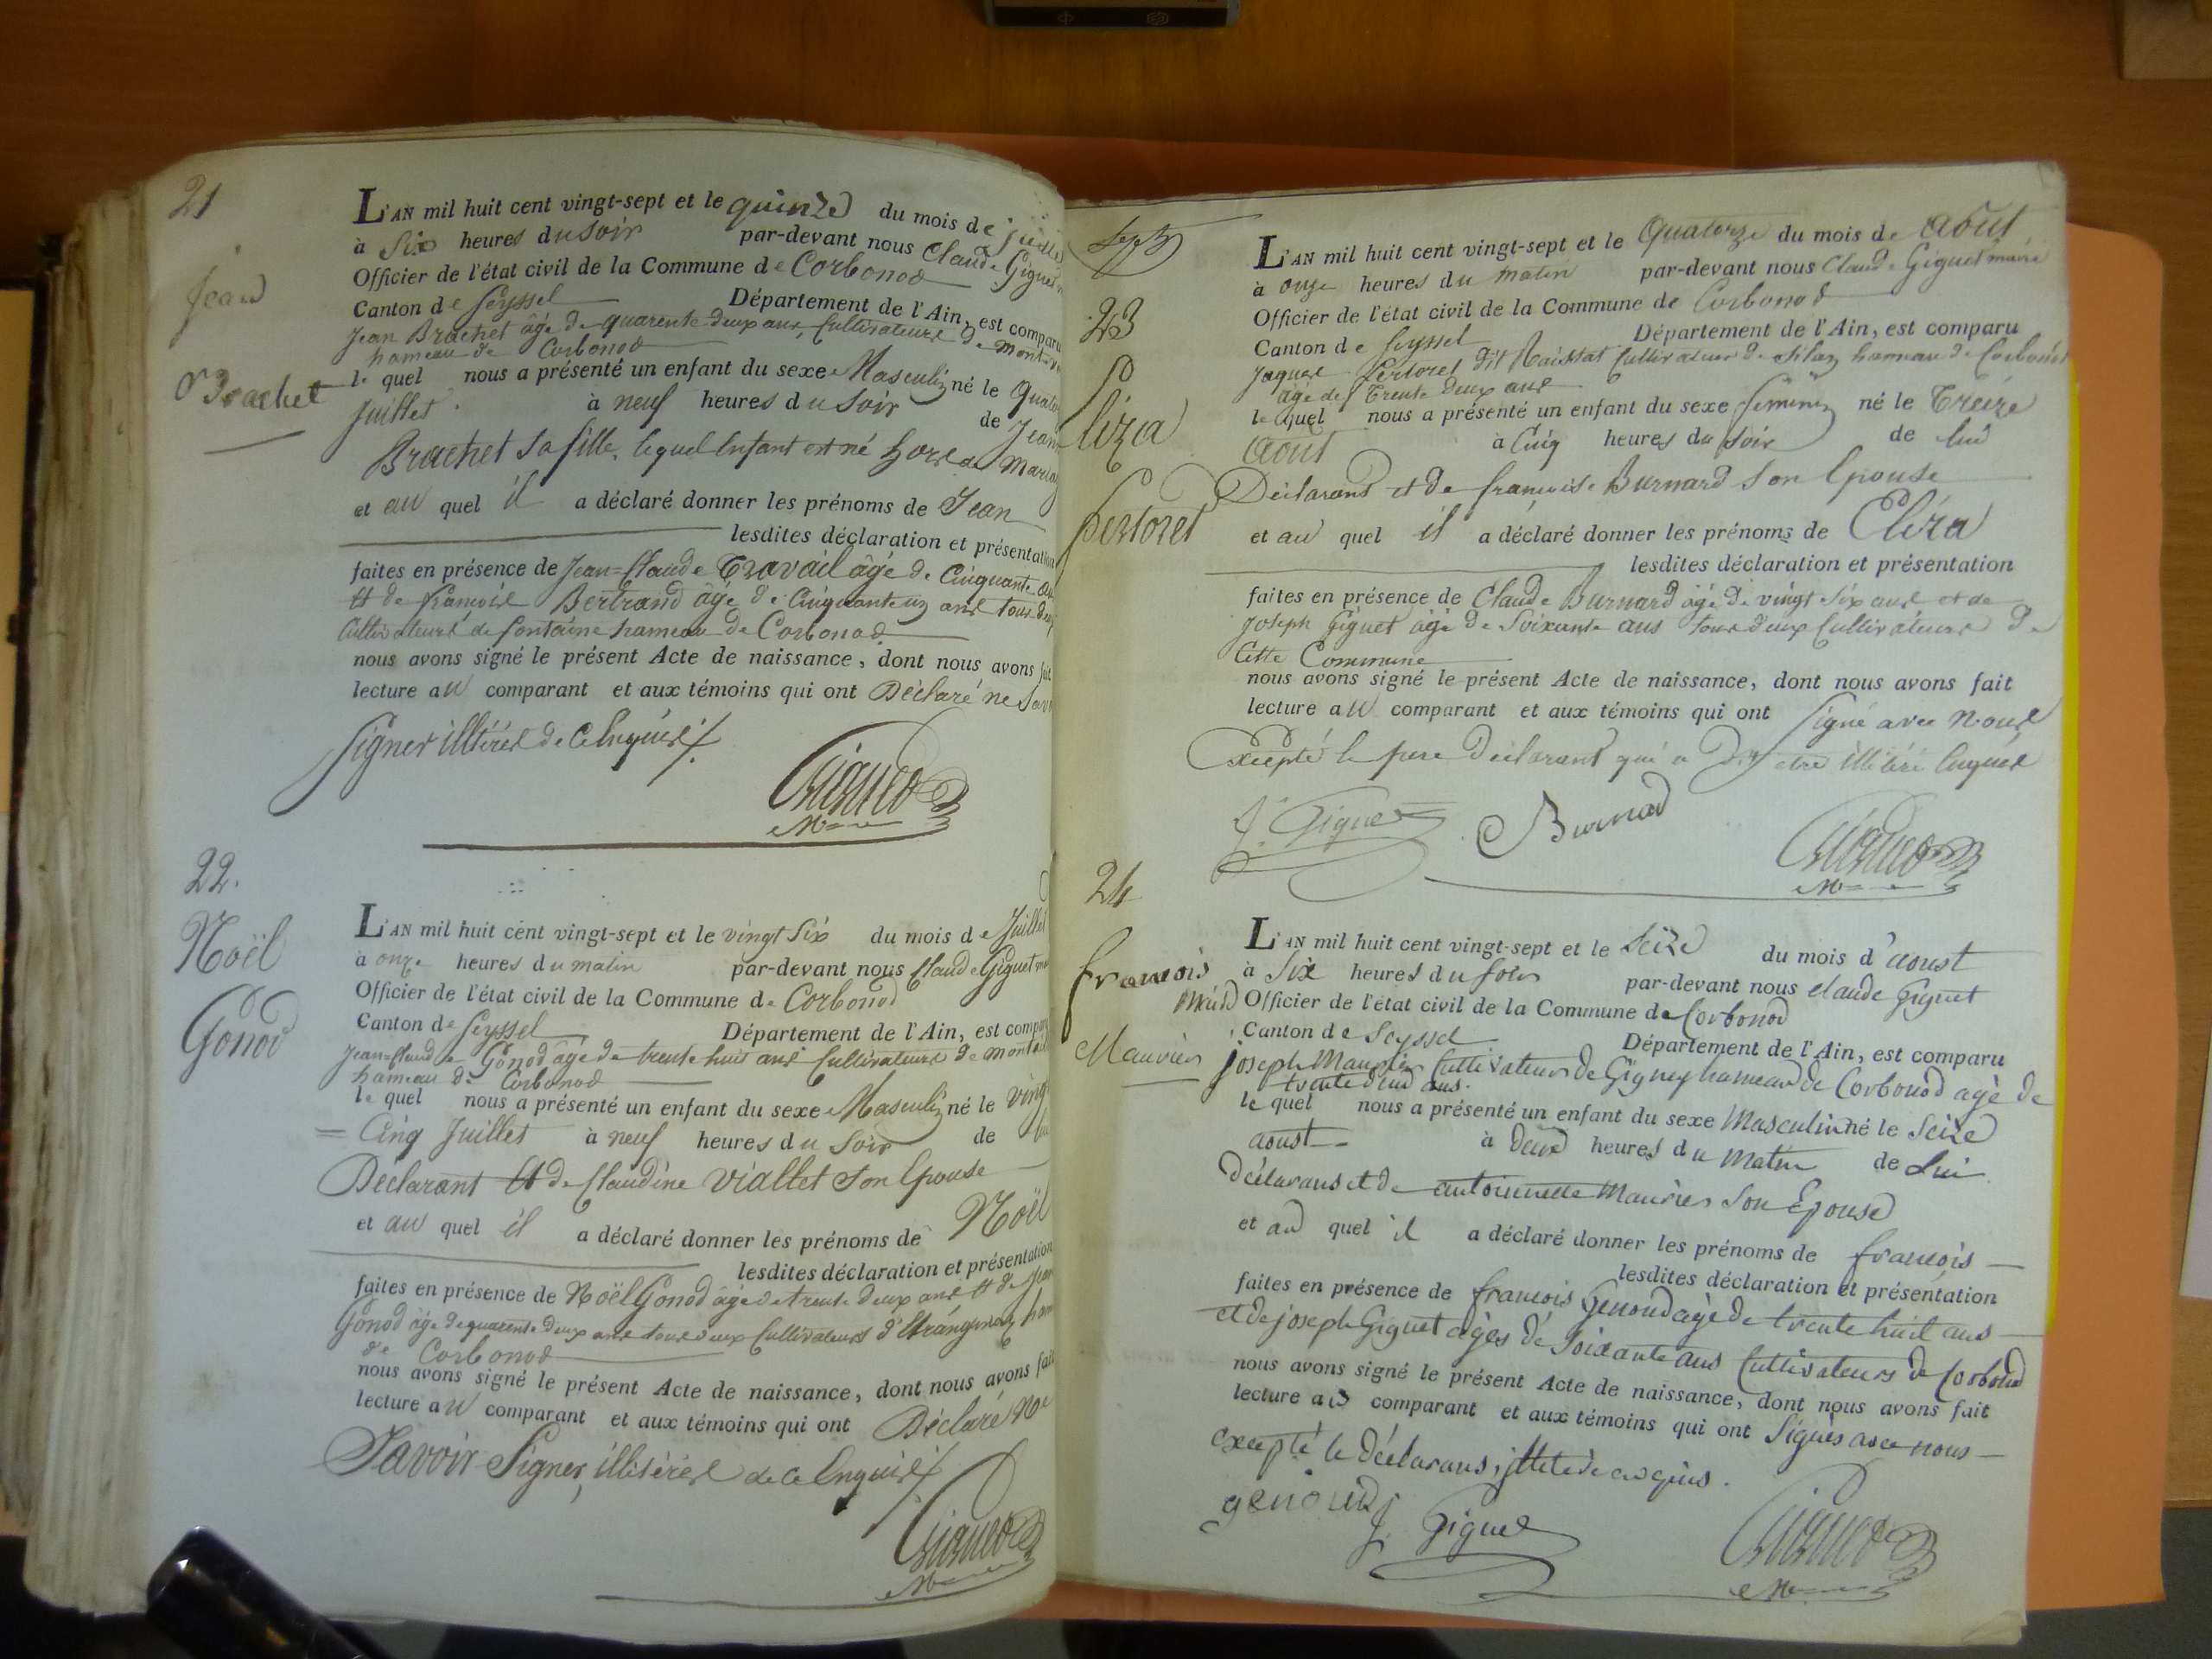 21
Jean
Brachet
L'AN mil huit cent vingt-sept et le quinze du mois de juillet
à Six heures du Soir par-devant nous Claude Giguet
Officier de l'état civil de la Commune de Corbonod
Canton de Seyssel Département de l'Ain, est comparu
Jean Brachet âgé de quarente deux ans, Cultivateur de
hameau de Corbonod
le quel nous a présenté un enfant du sexe Masculin né le
Juillet à neuf heures du Soir de Jean
Brachet Sa fille, lequel Enfant est né hors de Mariag
et au quel il a déclaré donner les prénoms de Jean
lesdites déclaration et présentation
faites en présence de Jean=Claude Travail âgé de Cinquante
Et de françois Bertrand âgé de Cinquante un ans tous deux
Cultivateurs de fontaine hameau de Corbonod
nous avons signé le présent Acte de naissance, dont nous avons fait
lecture au comparant et aux témoins qui ont Déclaré ne Savoir
Signer illitérés de Ce Enquis
Giguet
M
22.
Noël
Gonod
L'AN mil huit cent vingt-sept et le vingt Six du mois de Juillet
à onze heures du matin par-devant nous Claude Giguet
Officier de l'état civil de la Commune de Corbonod
Canton de Seyssel Département de l'Ain, est comparu
Jean=Claude Gonod âgé de trente huit ans Cultivateur de
hameau de Corbonod
le quel nous a présenté un enfant du sexe Masculin né le Vingt
= Cinq Juillet à neuf heures du Soir de lui
Déclarant Et de Claudine Viallet Son Epouse
et au quel il a déclaré donner les prénoms de Noël
lesdites déclaration et présentation
faites en présence de Noël Gonod âgé de trente deux ans Et de Jean
Gonod âgé de quarente deux ans tous deux Cultivateurs
de Corbonod
nous avons signé le présent Acte de naissance, dont nous avons fait
lecture au comparant et aux témoins qui ont Déclaré Ne
Savoir Signer, illitérés de Ce Enquis
Giguet
M
23
Eliza
Pertoret
L'AN mil huit cent vingt-sept et le Quatorze du mois de Août
à onze heures du matin par-devant nous Claude Giguet maire
Officier de l'état civil de la Commune de Corbonod
Canton de Seyssel Département de l'Ain, est comparu
Jaques Pertoret dit Raissat Cultivateur de Silan hameau de Corbonod
âgé de Trente Deux ans
le quel nous a présenté un enfant du sexe feminin né le Treize
Aout à Cinq heures du Soir de lui
Déclarant et de françoise Burnard Son Epouse
et au quel il a déclaré donner les prénoms de Eliza
lesdites déclaration et présentation
faites en présence de Claude Burnard âgé de vingt Six ans et de
Joseph Giguet âgé de Soixante ans tous deux Cultivateurs de
Cette Commune
nous avons signé le présent Acte de naissance, dont nous avons fait
lecture au comparant et aux témoins qui ont Signé avec nous
Excepté le pere Déclarant qui a Dit etre illitéré Enquis
J. Giguet Burnod Giguet
M
24
francois
Maurier
L'AN mil huit cent vingt-sept et le Seize du mois d'aoust
à Six heures du Soir par-devant nous Claude Giguet
maire Officier de l'état civil de la Commune de Corbonod
Canton de Seyssel Département de l'Ain, est comparu
joseph Maurier Cultivateur de Gigney hameau de Corbonod agé de
trente deux ans.
le quel nous a présenté un enfant du sexe Masculin né le Seize
aoust à deux heures du Matin de Lui
déclarans et de antoinnette Maurier Son Epouse
et au quel il a déclaré donner les prénoms de francois
lesdites déclaration et présentation
faites en présence de francois Genoud agé de trente huit ans
et de joseph Giguet ages de Soixante ans Cultivateurs de Corbonod
nous avons signé le présent Acte de naissance, dont nous avons fait
lecture au comparant et aux témoins qui ont Signés avec nous
excepté le déclarans, illiteré
genoud J. Giguet Giguet
M